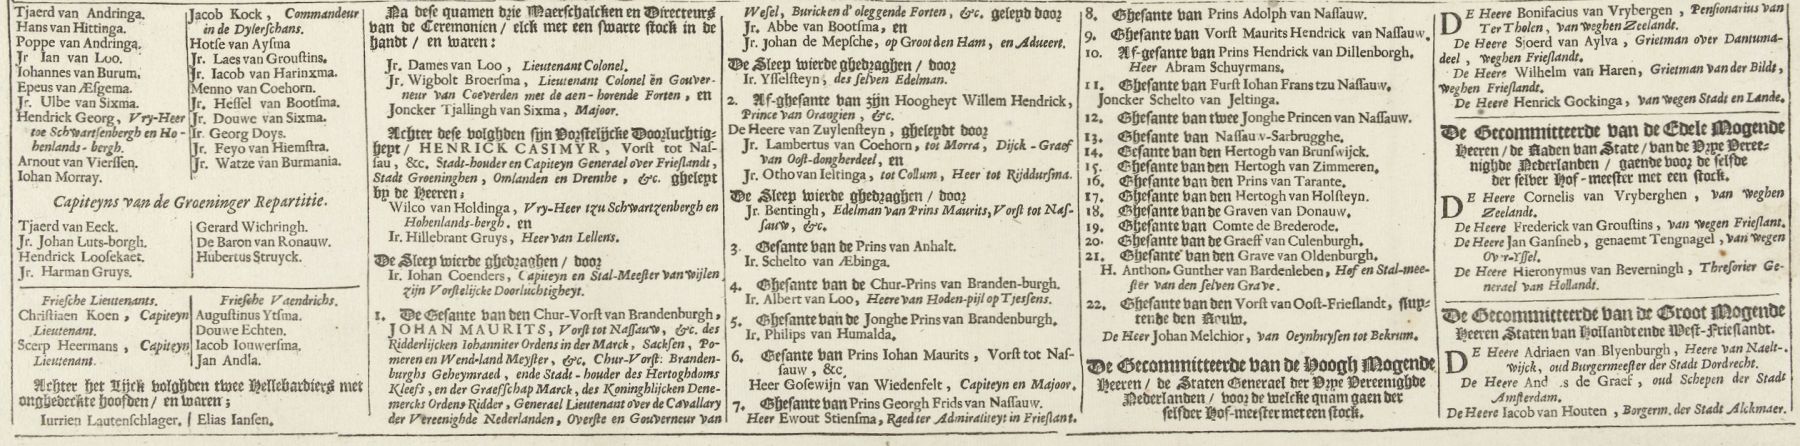 Tjaerd van Andringa.
Hans van Hittinga.
Poppe van Andringa.
Jr Ian van Loo.
Iohannes van Burum.
Epeus van Æsgema.
Jr. Ulbe van Sixma.
Hendrick Georg, Vry-Heer
toe Schwartsenbergh en Ho-
henlands-bergh.
Arnout van Vierssen.
Iohan Morray.
Jacob Kock, Commandeur
in de Dylerschans.
Hotse van Aysma
Jr. Laes van Groustins.
Jr. Iacob van Harinxma.
Menno van Coehorn.
Jr. Hessel van Bootsma.
Jr. Douwe van Sixma.
Ir. Georg Doys.
Jr. Feyo van Hiemstra.
Jr. Watze van Burmania.
Capiteyns van de Groeninger Repartitie.
Tjaerd van Eeck.
Jr. Johan Luts-borgh.
Hendrick Loosekaet.
Jr. Harman Gruys.
Gerard Wichringh.
De Baron van Ronauw.
Hubertus Struyck.
Friesche Lieutenants.
Christiaen Koen, Capiteyn
Lieutenant.
Scerp Heermans, Capiteyn
Lieutenant.
Friesche Vaendrichs.
Augustinus Ytsma.
Douwe Echten.
Iacob Iouwersma.
Jan Andla.
Achter het Lijck volghden twee Hellebardiers met
onghedeckte hoofden / en waren;
Iurrien Lautenschlager. Elias Iansen.
Na dese quamen drie Maerschalcken en Directeurs
van de Ceremonien / elck met een swarte stock in de
handt / en waren:
Jr. Dames van Loo, Lieutenant Colonel.
Jr. Wigbolt Broersma, Lieutenant Colonel en Gouver-
neur van Coeverden met de aen-horende Forten, en
Joncker Tjallingh van Sixma, Majoor.
Achter dese volghden sijn Vorstelijcke Doorluchtig-
heyt / HENRICK CASIMYR, Vorst tot Nas-
sau, &c. Stadt-houder en Capiteyn Generael over Frieslandt,
Stadt Groeninghen, Omlanden en Drenthe, &c. gheleyt
by de Heeren;
Wilco van Holdinga, Vry-Heer tzu Schwartzenbergh en
Hohenlands-bergh. en
Ir. Hillebrant Gruys, Heer van Lellens.
De Sleep wierde ghedraghen / door
Ir. Iohan Coenders, Capiteyn en Stal-Meester van wijlen
zijn Vorstelijcke Doorluchtigheyt.
1. De Gesante van den Chur-Vorst van Brandenburgh,
JOHAN MAURITS, Vorst tot Nassauw, &c. des
Ridderlijcken Iohanniter Ordens in der Marck, Sacksen, Po-
meren en Wend-land Meyster, &c. Chur-Vorst: Branden-
burghs Geheymraed, ende Stadt-houder des Hertoghdoms
Kleefs, en der Graefschap Marck, des Koninghlijcken Dene-
mercks Ordens Ridder, Generael Lieutenant over de Cavallary
der Vereenighde Nederlanden, Overste en Gouverneur van
Wesel, Buricken d' oleggende Forten, &c. geleyd door
Jr. Abbe van Bootsma, en
Jr. Johan de Mepsche, op Groot den Ham, en Adueert.
De Sleep wierde ghedraghen / door
Ir. Ysselsteyn, des selven Edelman.
2. Af-ghesante van zijn Hoogheyt Willem Hendrick,
Prince van Orangien, &c.
De Heere van Zuylensteyn, gheleydt door
Jr. Lambertus van Coehorn, tot Morra, Dijck-Graef
van Oost-dongherdeel, en
Jr. Otho van Ieltinga, tot Collum, Heer tot Rijddursma.
De Sleep wierde ghedraghen / door
Jr. Bentingh, Edelman van Prins Maurits, Vorst tot Nas-
sauw, &c.
3. Gesante van de Prins van Anhalt.
Ir. Schelto van Æbinga.
4. Ghesante van de Chur-Prins van Branden-burgh.
Ir. Albert van Loo, Heere van Hoden-pijl op Tjessens.
5. Ghesante van de Jonghe Prins van Brandenburgh.
Ir. Philips van Humalda.
6. Gesante van Prins Iohan Maurits, Vorst tot Nas-
sauw, &c.
Heer Gosewijn van Wiedenfelt, Capiteyn en Majoor.
7. Ghesante van Prins Georgh Frids van Nassauw.
Heer Ewout Stiensma, Raed ter Admiraliteyt in Frieslant.
8. Ghesante van Prins Adolph van Nassauw.
9. Ghesante van Vorst Maurits Hendrick van Nassauw.
10. Af-gesante van Prins Hendrick van Dillenborgh.
Heer Abram Schuyrmans.
11. Ghesante van Furst Iohan Frans tzu Nassauw.
Joncker Schelto van Jeltinga.
12. Ghesante van twee Jonghe Princen van Nassauw.
13. Ghesante van Nassauw-Sarbrugghe.
14. Gesante van den Hertogh van Brunswijck.
15. Ghesante van den Hertogh van Zimmeren.
16. Ghesante van den Prins van Tarante.
17. Ghesante van den Hertogh van Holsteyn.
18. Ghesante van de Graven van Donauw.
19. Ghesante van Comte de Brederode.
20. Ghesante van de Graeff van Culenburgh.
21. Ghesante van den Grave van Oldenburgh.
H. Anthon. Gunther van Bardenleben, Hof en Stal-mee-
ster van den selven Grave.
22. Ghesante van den Vorst van Oost-Frieslandt, sluy-
tende den Rouw.
De Heer Johan Melchior, van Oeynhuysen tot Bekrum.
De Gecommitteerde van de Hoogh Mogende
Heeren / de Staten Generael der Vrye Vereenighde
Nederlanden / voor de welcke quam gaen der
selfder Hof-meester met een stock.
DE Heere Bonifacius van Vrybergen, Pensionarius van
Ter Tholen, van weghen Zeelandt.
De Heere Sjoerd van Aylva, Grietman over Dantuma-
deel, weghen Frieslandt.
De Heere Wilhelm van Haren, Grietman van der Bildt,
weghen Frieslandt.
De Heere Henrick Gockinga, van wegen Stadt en Lande.
De Gecommitteerde van de Edele Mogende
Heeren / de Raden van State / van de Vrye Veree-
nighde Nederlanden / gaende voor de selfde
der selver Hof-meester met een stock.
DE Heere Cornelis van Vryberghen, van weghen
Zeelandt.
De Heere Frederick van Groustins, van wegen Frieslant.
De Heere Jan Gansneb, genaemt Tengnagel, van wegen
Over-Yssel.
De Heere Hieronymus van Beverningh, Thresorier Ge-
nerael van Hollandt.
De Gecommitteerde van de Groot Mogende
Heeren Staten van Hollandt ende West-Frieslandt.
DE Heere Adriaen van Blyenburgh, Heere van Naelt-
wijck, oud Burgermeester der Stadt Dordrecht.
De Heere And s de Graef, oud Schepen der Stadt
Amsterdam.
De Heere Iacob van Houten, Borgerm. der Stadt Alckmaer.